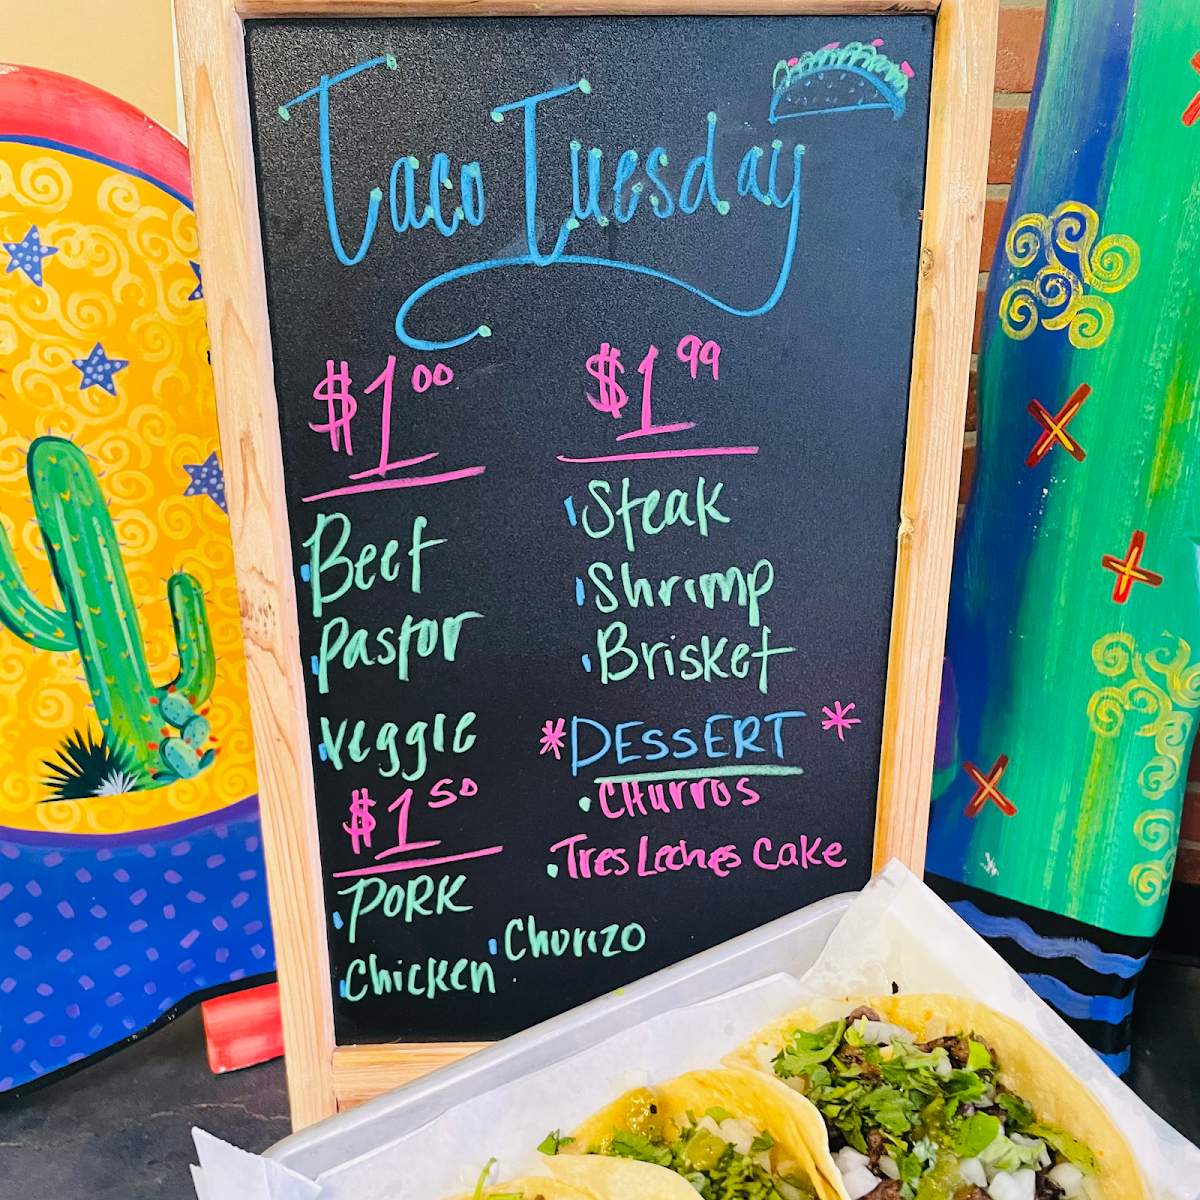 Taco Tuesday
$1.00
Beef
Pastor
Veggie
$1.50
PORK
Chicken
Chorizo
$1.99
Steak
Shrimp
Brisket
*DESSERT*
Churros
Tres Leches Cake